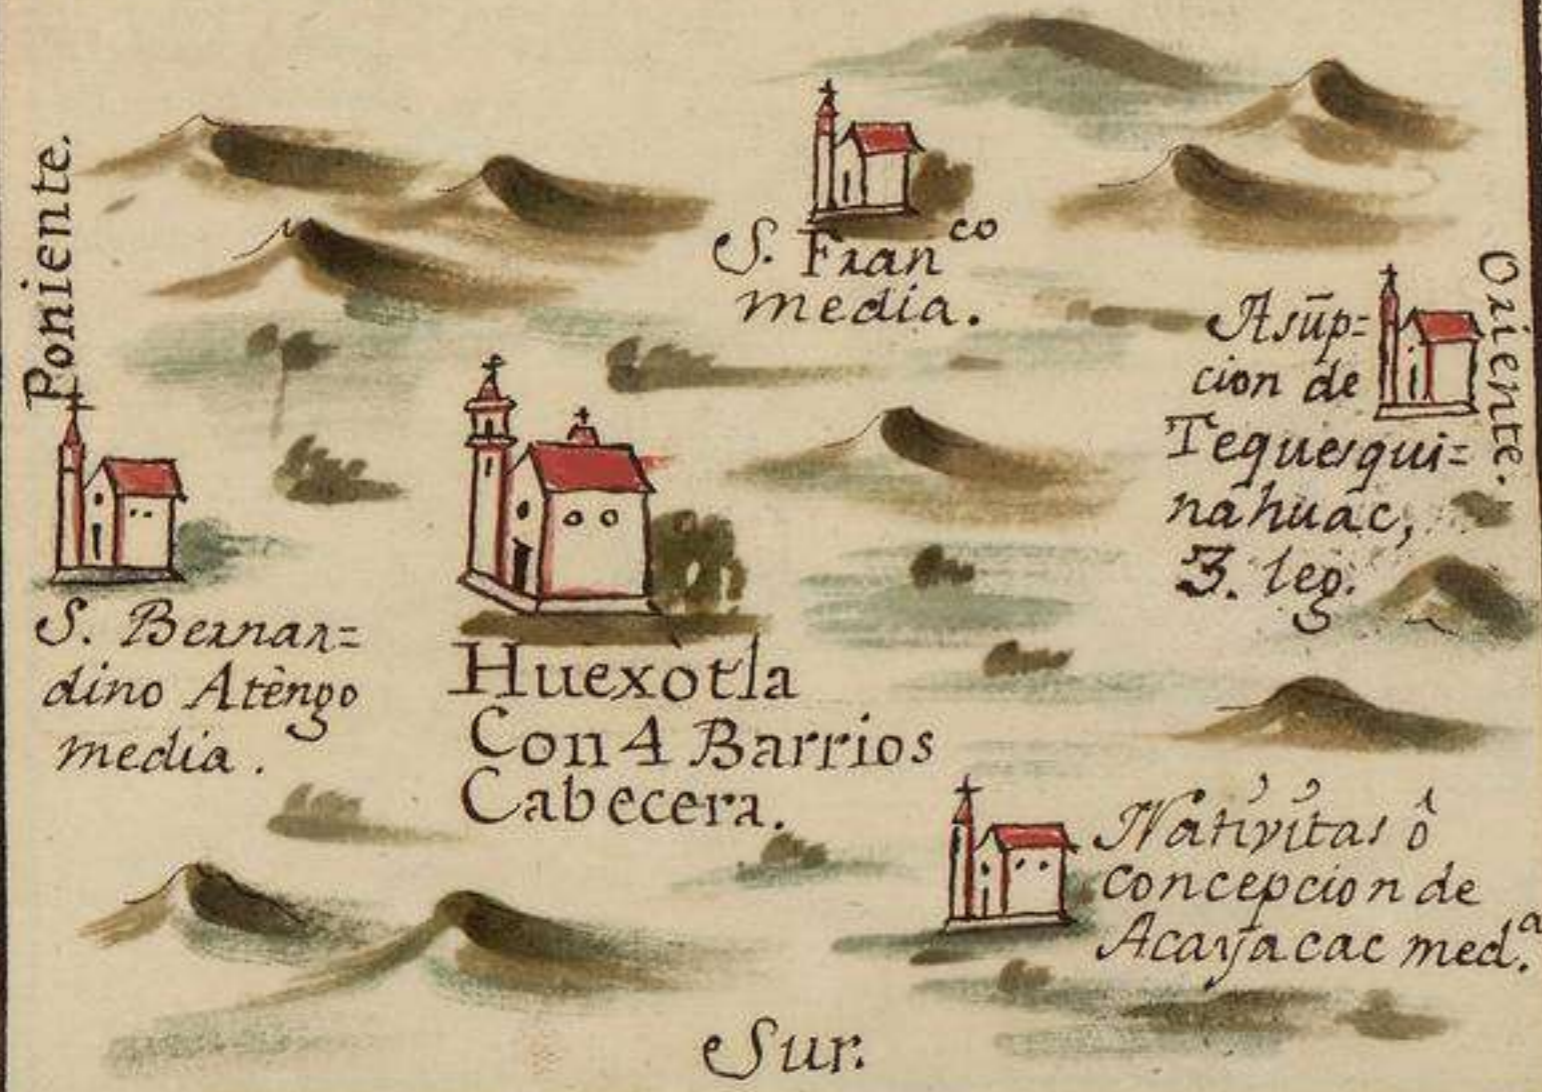 Poniente.
S. Franco
media.
Oriente.
Asũp=
cion de
Tequesqui=
nahuac,
3. leg.
S. Bernar=
dino Atèngo
media.
Huexòtla
Con 4 Barrios
Cabecera.
Nativitas ô
concepcion de
Acayacac med.a
Sur.